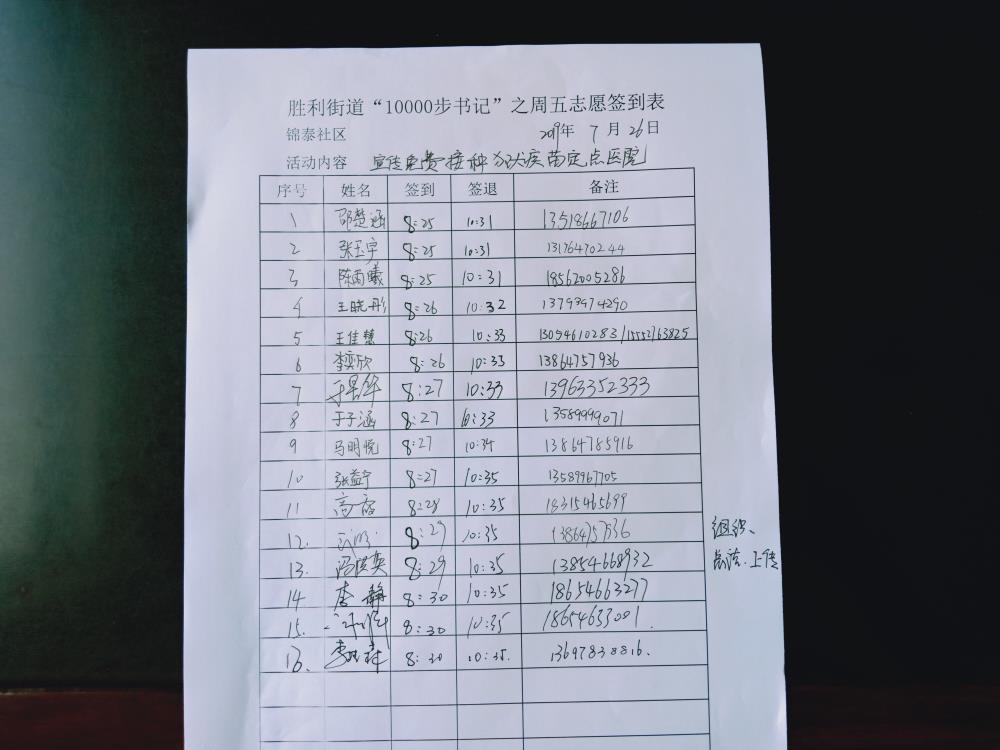 胜利街道“10000步书记”之周五志愿签到表
锦泰社区 2019年 7月26日
活动内容 宣传免费接种狂犬疫苗定点医院
序号 姓名 签到 签退 备注
1 邵楚涵 8:25 10:31 13518667106
2 张玉宇 8:25 10:31 13176470244
3 陈雨曦 8:25 10:31 18562005286
4 王晓彤 8:26 10:32 13793974290
5 王佳慧 8:26 10:33 13054610283/15552763825
6 李奕欣 8:26 10:33 13864757936
7 8:27 10:33 13963352333
8 于子涵 8:27 10:33 13589999071
9 马明悦 8:27 10:34 13864785916
10 张益宁 8:27 10:35 13589967705
11 高 8:28 10:35 18315465699
12. 8:29 10:35 13864757536
组织、
13. 冯洪奕 8:29 10:35 13854668932
上传
14 李静 8:30 10:35 18654663277
15. 8:30 10:35 18654633001.
16. 李 8:30 10:35. 13697838816.